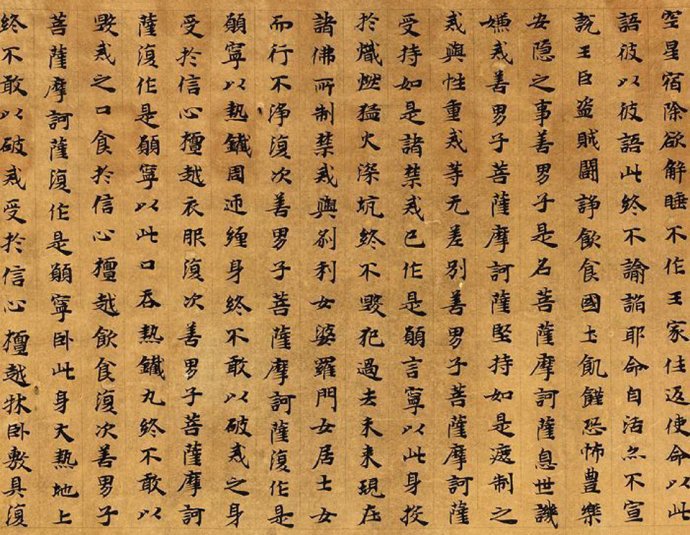 空星宿除欲解睡不作王家住返使命以此
語彼以彼語此終不諭謟耶命自活忽不宣
説王臣盜賊鬪諍飲食國土飢饉恐怖豊樂
安隱之事善男子是名菩薩摩訶薩息世譏
嫌戒善男子菩薩摩訶薩堅持如是遮制之
戒與性重戒等无差別善男子菩薩摩訶薩
受持如是諸禁戒已作是願言寧以此身投
於熾燃猛火深坑終不毀犯過去未來現在
諸佛所制禁戒與剎利女婆羅門女居士女
而行不淨復次善男子菩薩摩訶薩復作是
願寧以熱鐵周迊纏身終不敢以破戒之身
受於信心檀越衣服復次善男子菩薩摩訶
薩復作是願寧以此口吞熱鐵丸終不敢以
毀戒之口食於信心檀越飲食復次善男子
菩薩摩訶薩復作是願寧卧此身大熱地上
終不敢以破戒受於信心檀越牀卧敷具復